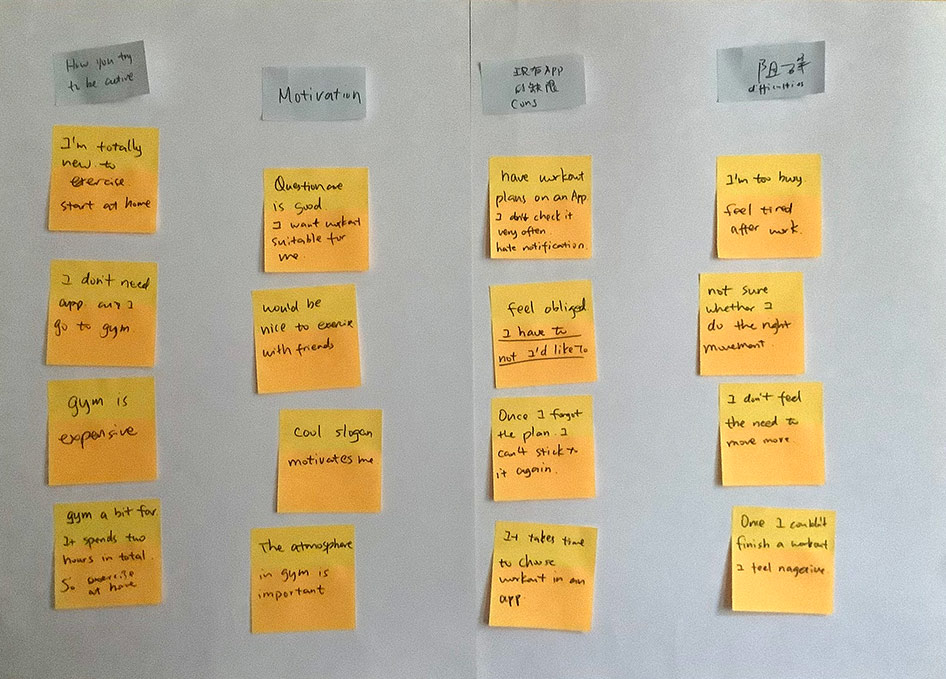 How you try
to be active
I'm totally
new to
exercise
start at home
I don't need
app any I
go to gym
gym is
expensive
gym a bit far.
It spends two
hours in total.
So exercise
at home
Motivation
Questionare
is good
I want workout
suitable for
me.
would be
nice to exercise
with friends
cool slogan
motivates me
The atmosphere
in gym is
important
现有APP
的缺陷
Cons
have workout
plans on an App.
I don't check it
very often.
hate notification.
feel obliged.
I have to
not I'd like to
Once I forgot
the plan. I
can't stick to
it again.
It takes time
to choose
workout in an
app
阻碍
difficulties
I'm too busy.
feel tired
after work.
not sure
whether I
do the right
movement.
I don't feel
the need to
move more
Once I couldn't
finish a workout
I feel nagerive.